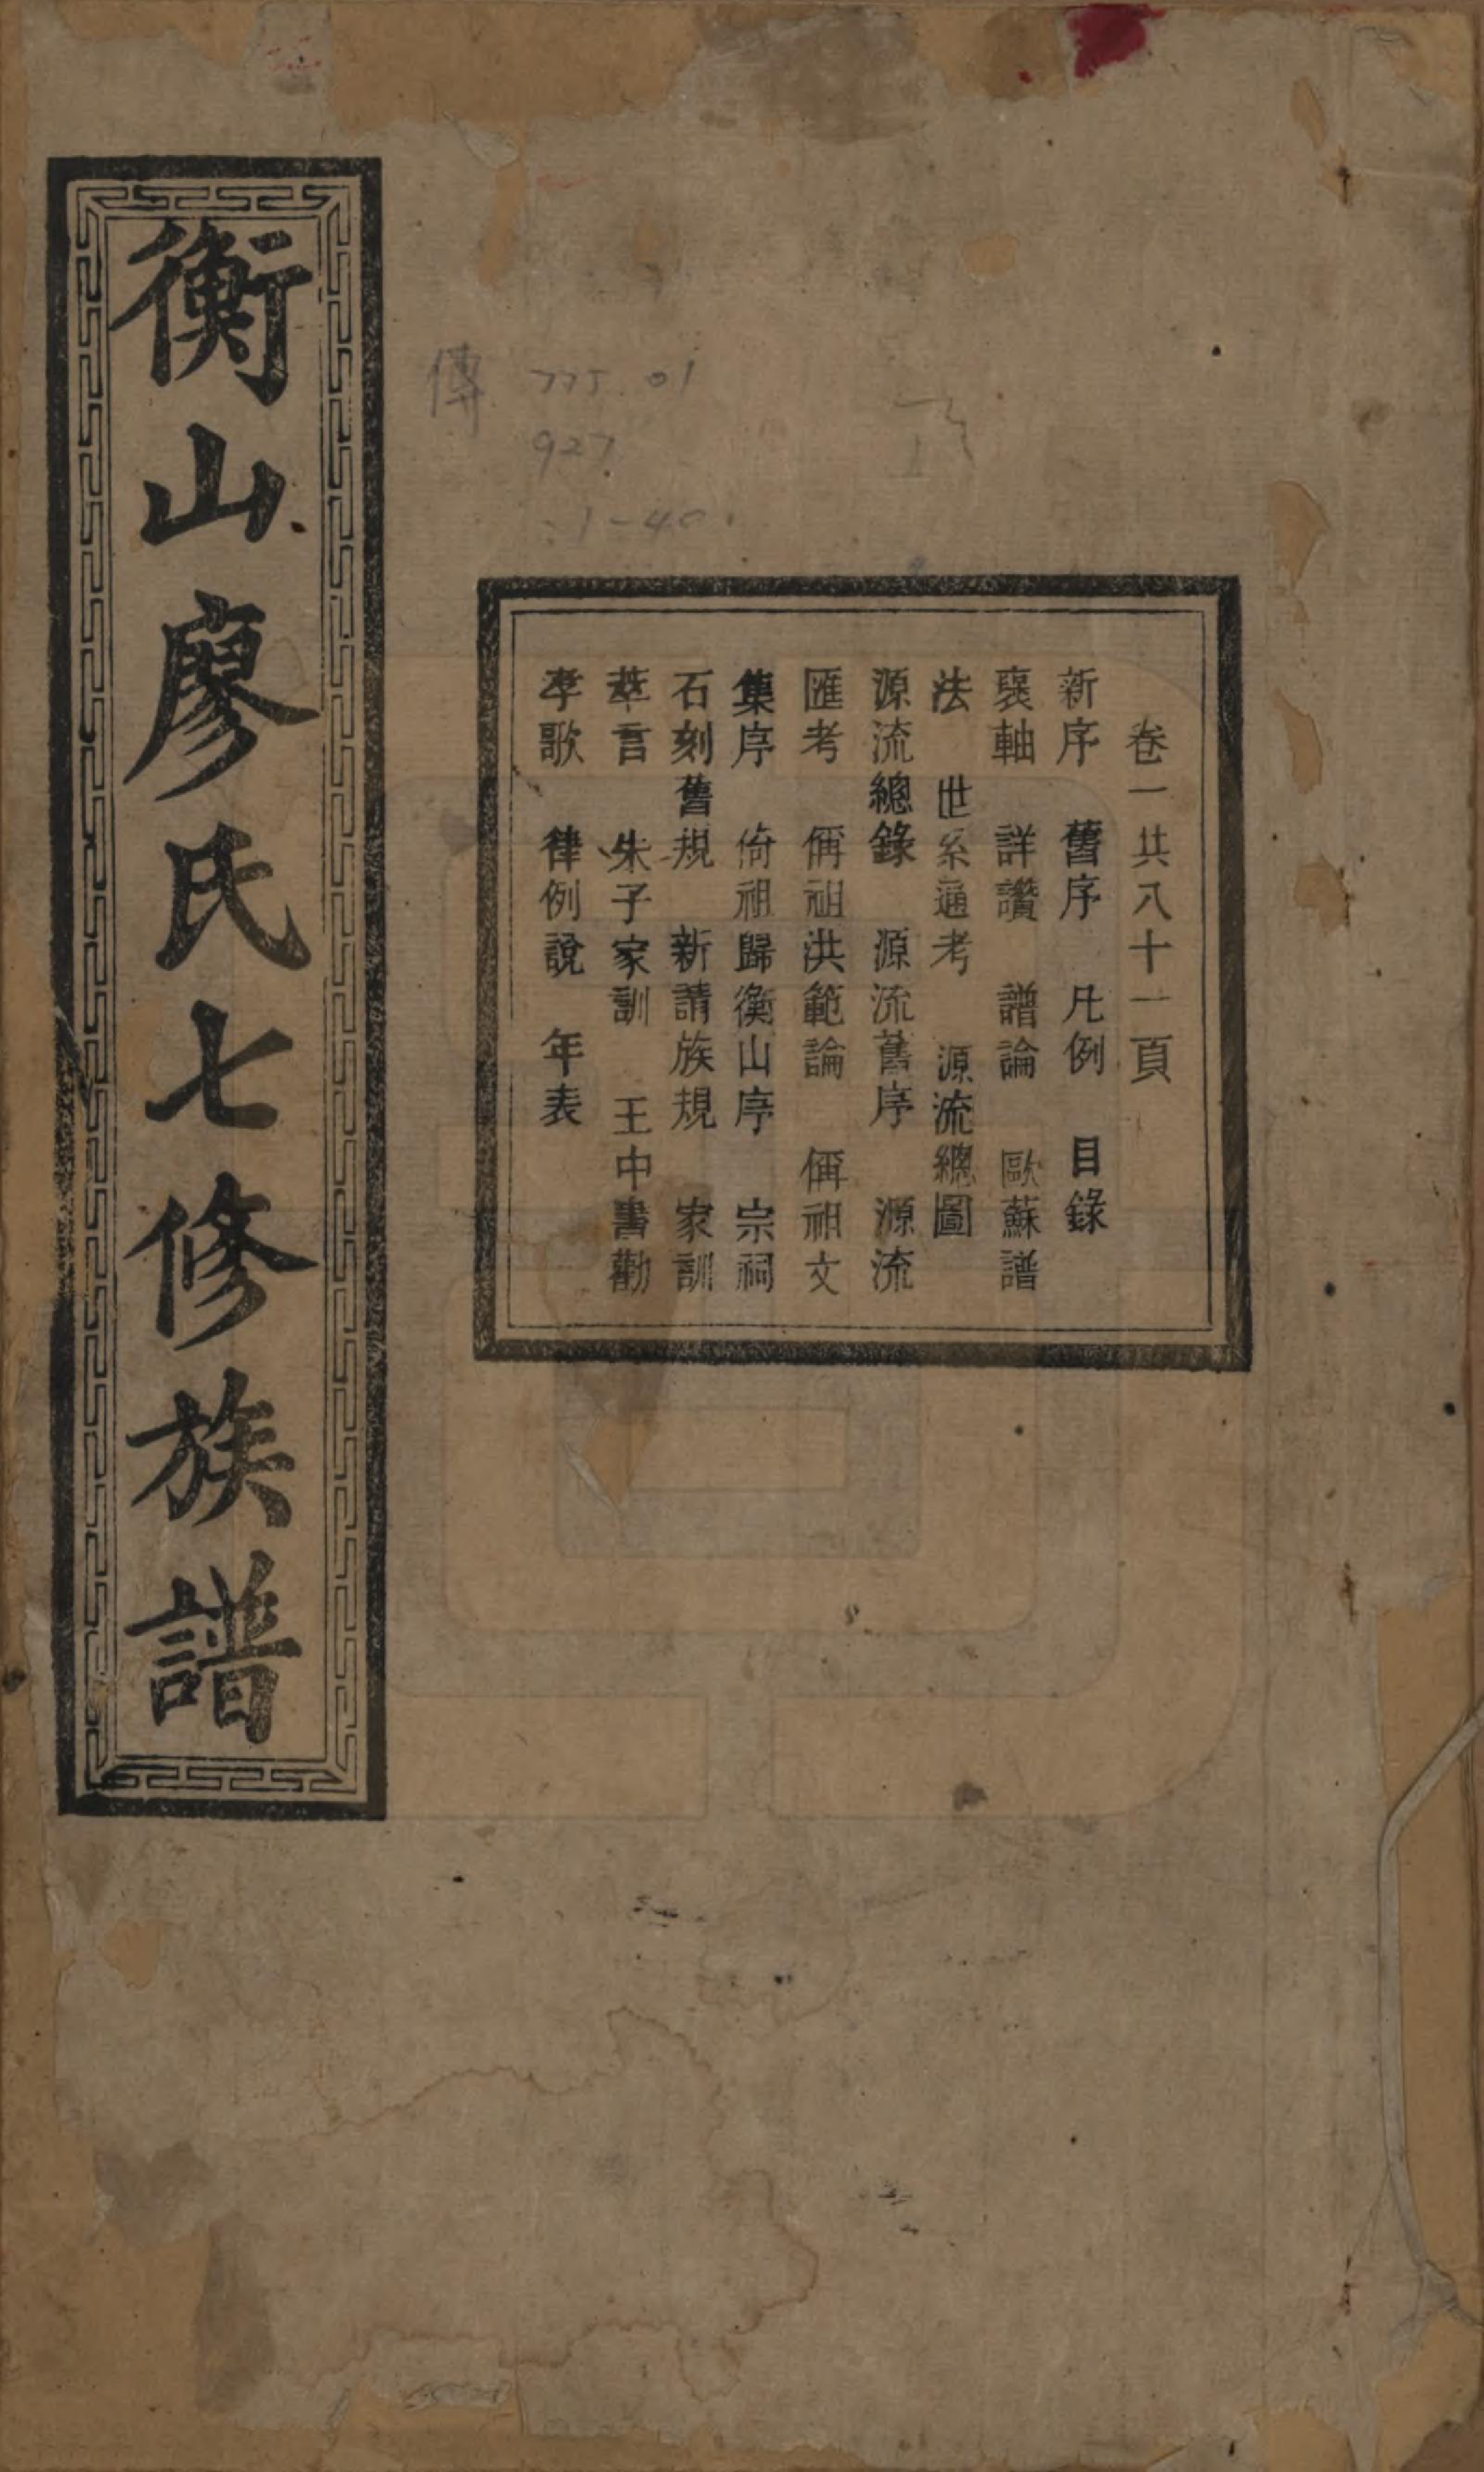 衡山廖氏七修族譜
傳 775.01
927
:1-40
卷一共八十一頁
新序 舊序 凡例 目錄
襃軸 詳讚 譜論 歐蘇譜
法 世系通考 源流總圖
源流總錄 源流舊序 源流
匯考 偁祖洪範論 偁祖文
集序 倚祖歸衡山序 宗祠
石刻舊規 新請族規 家訓
莘言 朱子家訓 王中書勸
孝歌 律例說 年表